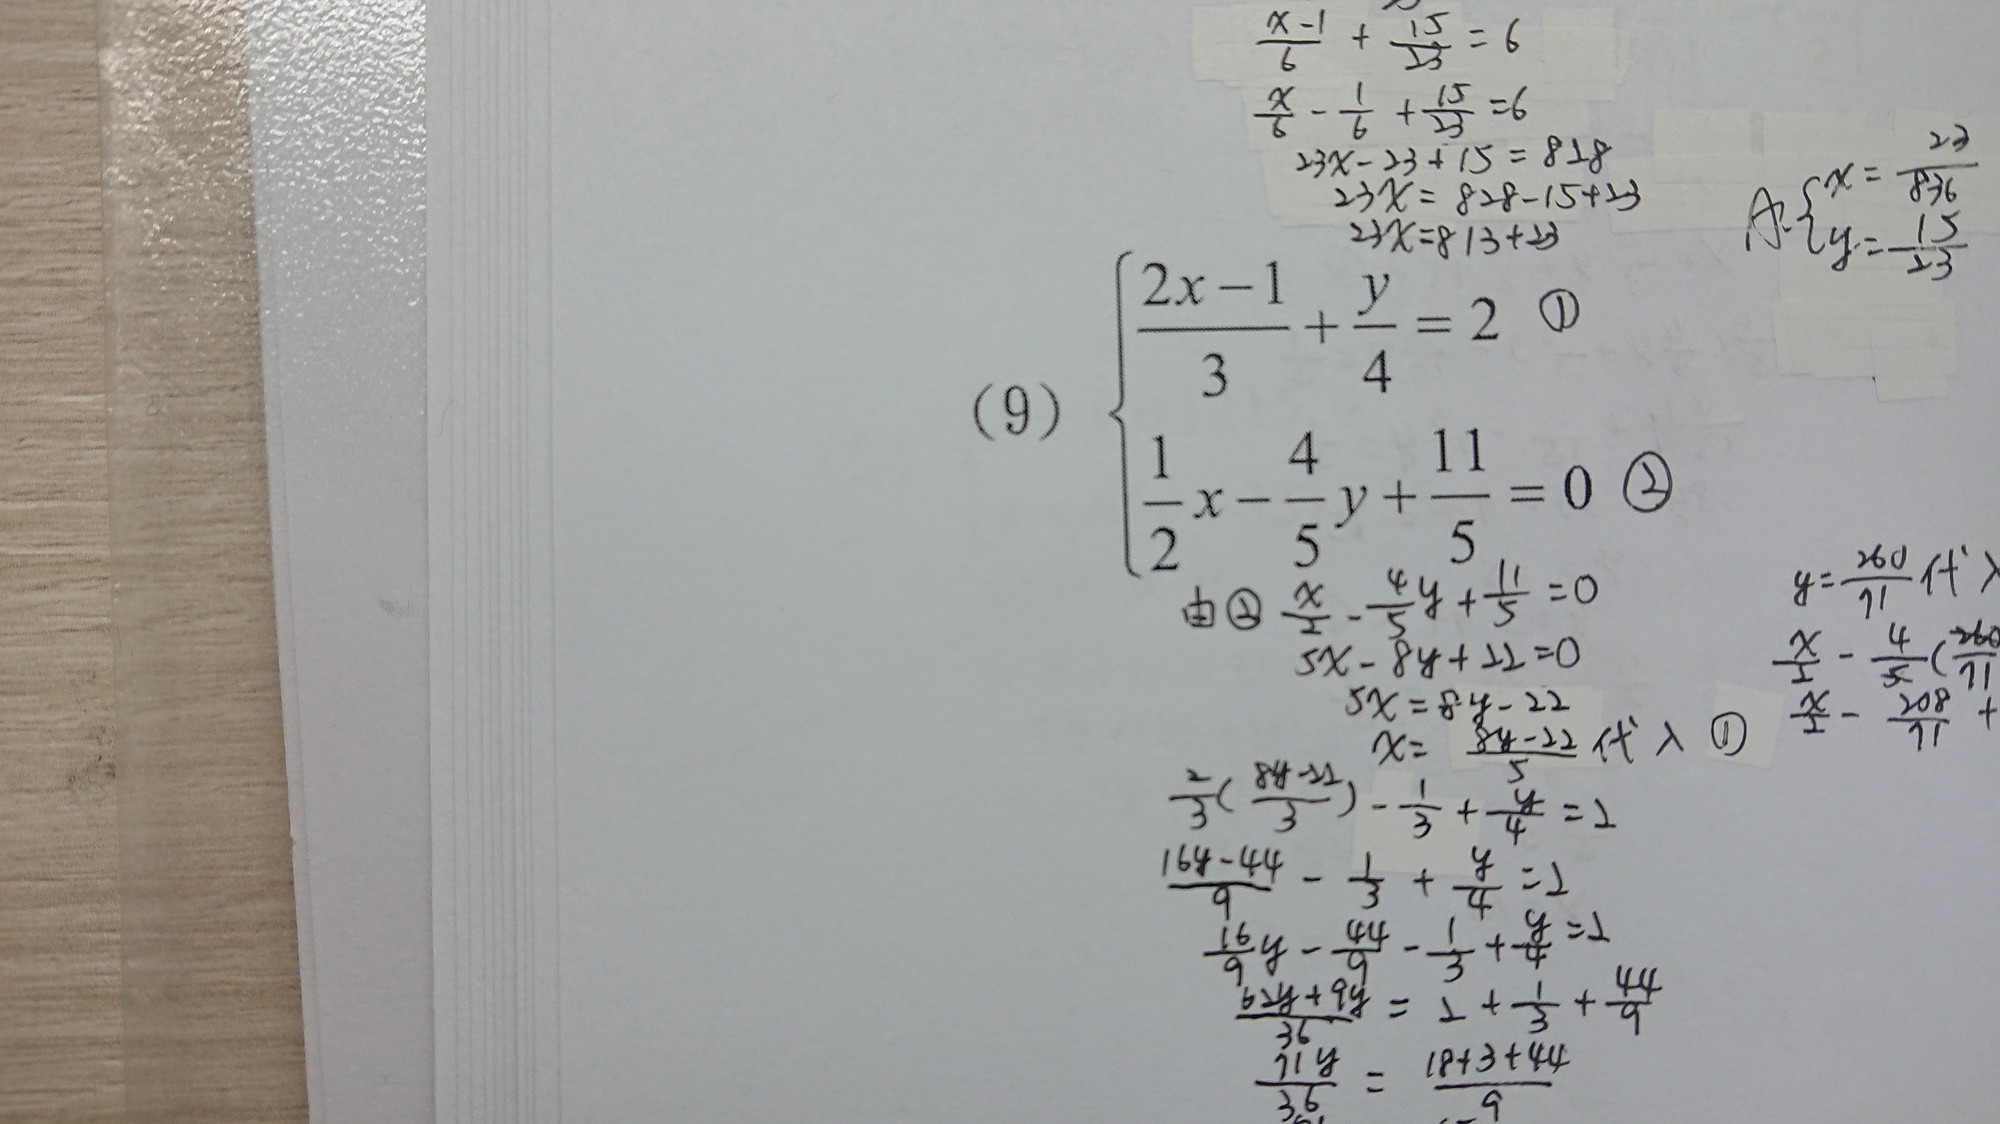 x-1/6 + 15/23 = 6
x/6 - 1/6 + 15/23 = 6
23x - 23 + 15 = 828
23x = 828 - 15 + 23
23x = 813 + 23
A: { x = 23/836
y = 15/23
(9) { 2x-1/3 + y/4 = 2 ①
1/2 x - 4/5 y + 11/5 = 0 ②
由② x/2 - 4/5 y + 11/5 = 0
5x - 8y + 22 = 0
5x = 8y - 22
x = 8y-22/5 代入 ①
2/3 ( 8y-22/3 ) - 1/3 + y/4 = 2
16y-44/9 - 1/3 + y/4 = 2
16/9 y - 44/9 - 1/3 + y/4 = 2
62y+9y/36 = 2 + 1/3 + 44/9
71y/36 = 18+3+44/9
y = 260/71 代入
x/2 - 4/5 ( 260/71
x/2 - 208/71 +